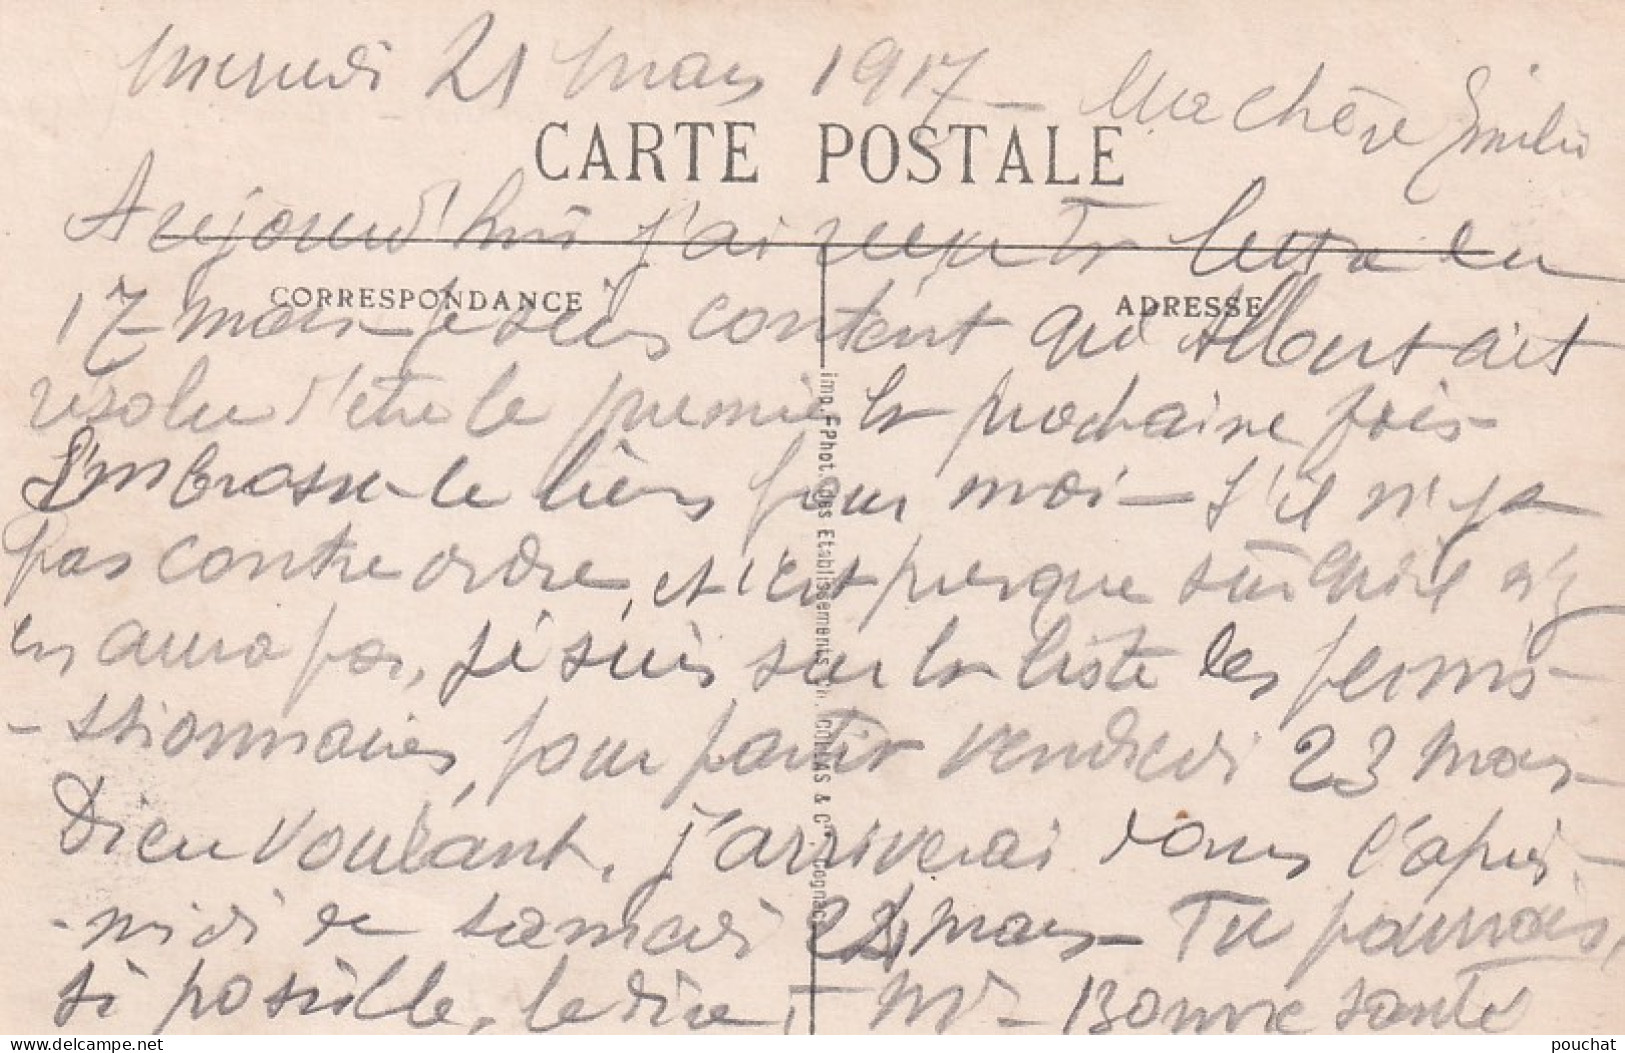 Mercredi 21 Mars 1917 – Ma chère Emilie
CARTE POSTALE
Aujourd'hui j'ai reçu ta lettre du
CORRESPONDANCE
ADRESSE
17 mars – je suis content que Albert ait
résolu d'être le premier la prochaine fois –
Embrasse-le bien pour moi – S'il n'y a
pas contre ordre, et c'est presque sûr qu'il n'y
en aura pas, je suis sur la liste des permis-
-sionnaires, pour partir vendredi 23 mars –
Dieu voulant, j'arriverai dans l'après-
-midi de samedi 24 mars – Tu pourrais,
si possible, le dire à Mr – Bonne santé
Imp. Phot. des Etablissements COLLAS & Cie Cognac
pouchat